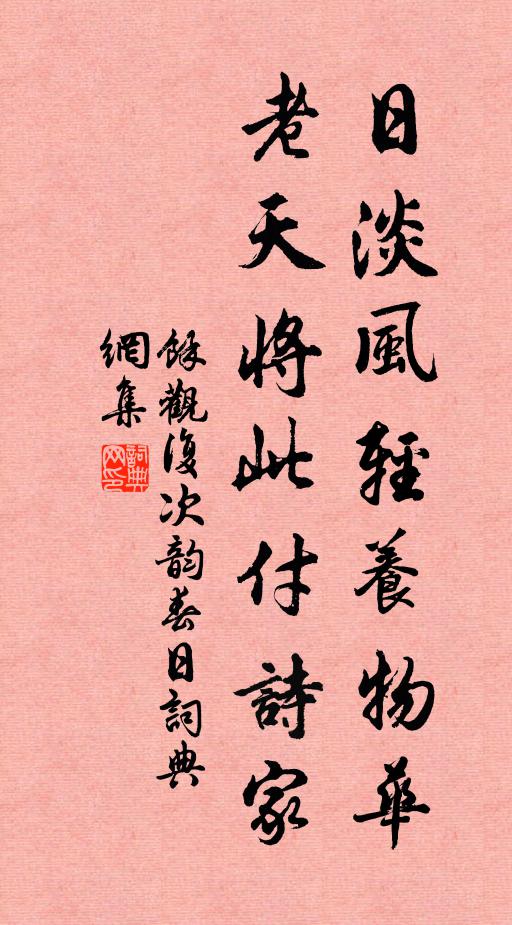 日淡風輕養物華
老天將此付詩家
餘觀復次韵春日詞典
網集
詞典
网印